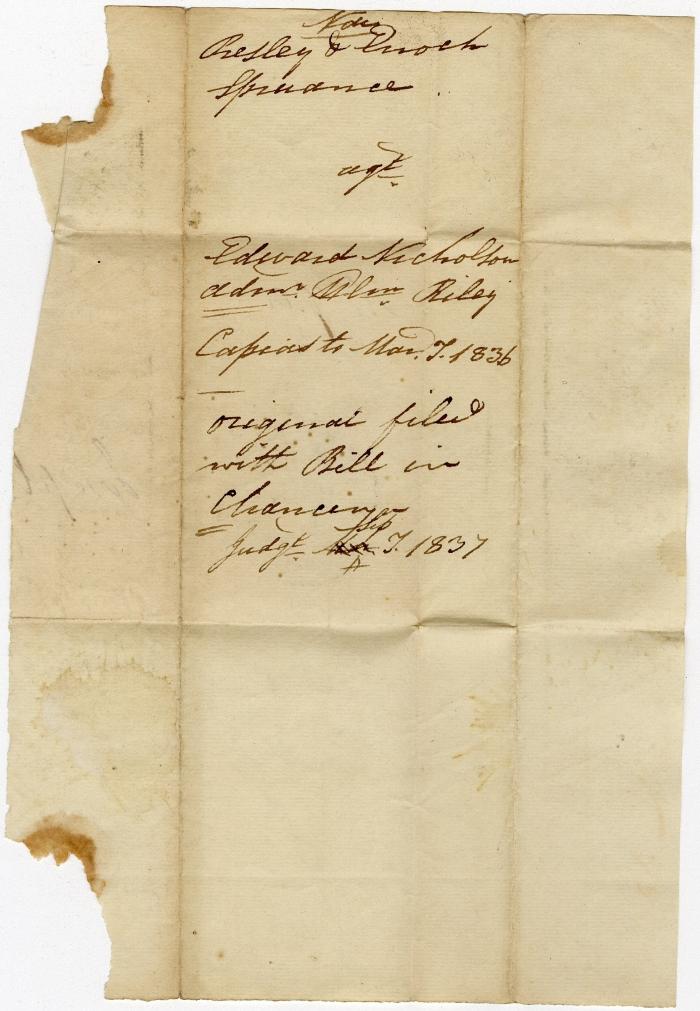 Presley & Enoch
Spruance
agt.
Edward Nicholson
admr. Wm Riley
Capias to Mar. T. 1836
original filed
with Bill in
Chancery
Sep
Judgt. T. 1837